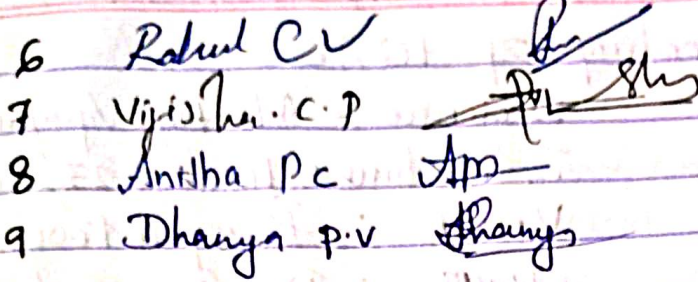 6 Rahul CV
7 Vijisha. C. P
8 Anisha P c
9 Dhanya p.v Dhanya